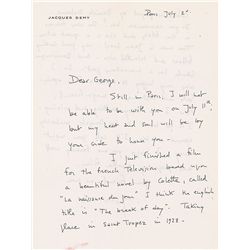 JACQUES DEMY
Paris July 2d
Dear George,
Still in Paris, I will not
be able to be with you on July 11th,
but my heart and soul will be by
your side to honor you -
I just finished a film
for the french Television, based upon
a beautiful novel by Colette, called
"La naissance du jour" I think the english
title is "The break of day". Taking
place in Saint Tropez in 1928 -